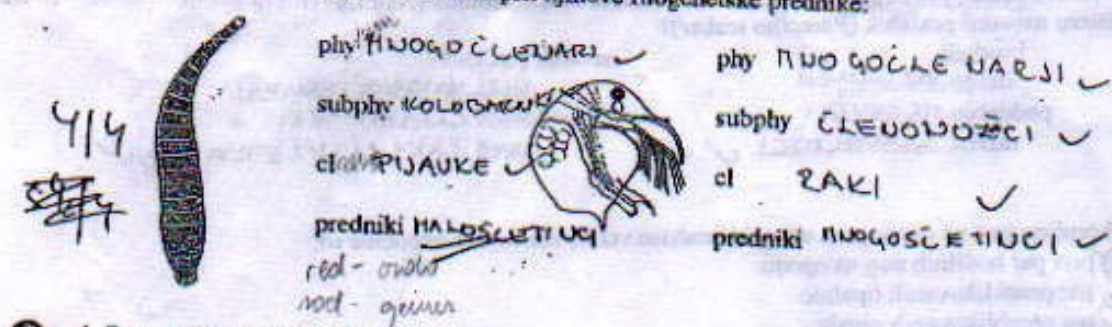 filogenetske prednike:
phy MNOGOČLENARJI ✓
subphy KOLOBARNIKI
cl PIJAVKE ✓
predniki MALOŠČETINCI
red - ordo
rod - genus
4/4
phy MNOGOČLENARJI ✓
subphy ČLENONOŽCI ✓
cl RAKI ✓
predniki MNOGOŠČETINCI ✓